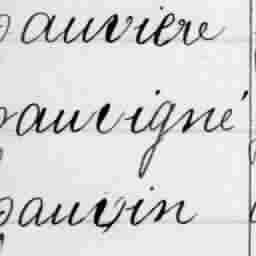 Jauvière
Jauvigné
Jauvin